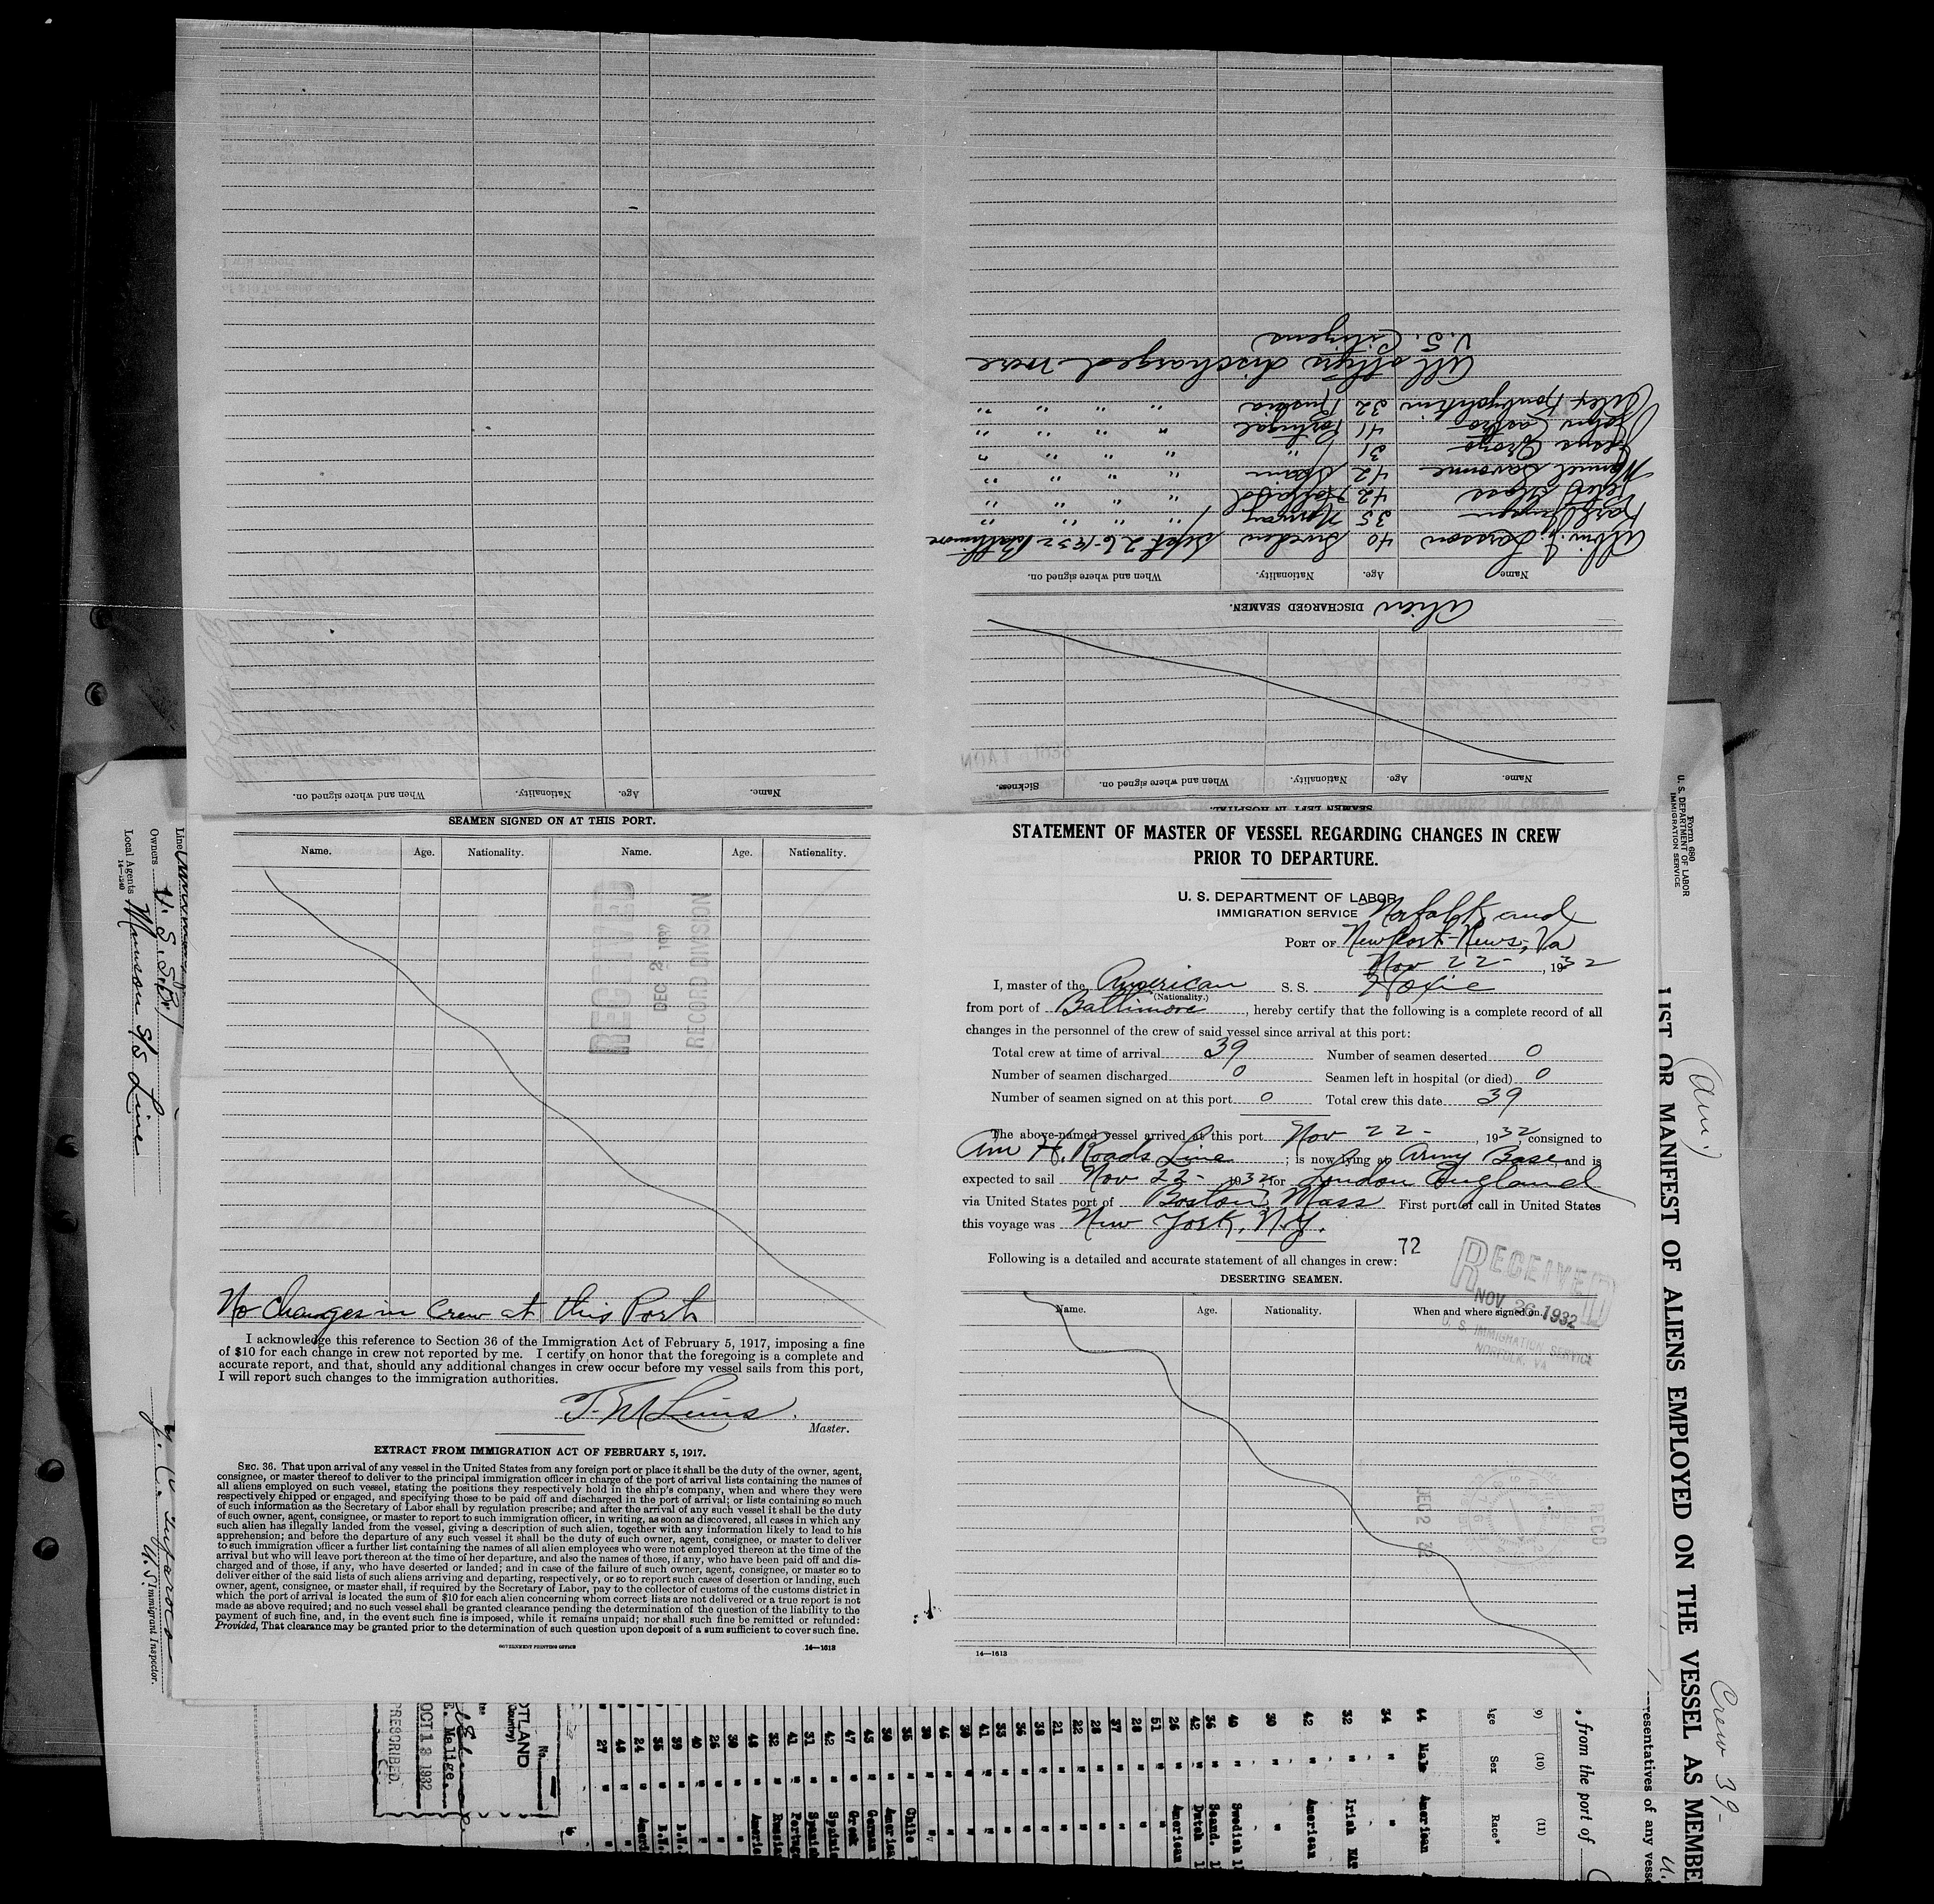 STATEMENT OF MASTER OF VESSEL REGARDING CHANGES IN CREW
PRIOR TO DEPARTURE.
U. S. DEPARTMENT OF LABOR
IMMIGRATION SERVICE
Norfolk and
PORT OF Newport-News, Va
Nov 22-, 1932
I, master of the American S. S. Hoxie
(Nationality.)
from port of Baltimore, hereby certify that the following is a complete record of all
changes in the personnel of the crew of said vessel since arrival at this port:
Total crew at time of arrival 39 Number of seamen deserted 0
Number of seamen discharged 0 Seamen left in hospital (or died) 0
Number of seamen signed on at this port 0 Total crew this date 39
The above-named vessel arrived at this port Nov 22-, 1932, consigned to
Am H. Roads Line; is now lying at Army Base, and is
expected to sail Nov 22-, 1932, for London England
via United States port of Boston, Mass First port of call in United States
this voyage was New York, N.Y.
72
Following is a detailed and accurate statement of all changes in crew:
DESERTING SEAMEN.
Name. Age. Nationality. When and where signed on.
RECEIVED
NOV 26 1932
U. S. IMMIGRATION SERVICE
NORFOLK, VA
DEC 2 32
RECD
14—1613
SEAMEN LEFT IN HOSPITAL.
Name. Age. Nationality. When and where signed on. Sickness.
Alien DISCHARGED SEAMEN.
Name Age. Nationality. When and where signed on.
Albin J. Larsson 40 Sweden Sept 26-1932 Baltimore
Karl 35 Norway " " " "
Peter 42 " " " "
Manuel 42 Spain " " " "
31 " " " " "
Castro 41 Portugal " " " "
Alex 32 Russia " " " "
All others discharged were
U.S. Citizens
Name. Age. Nationality. When and where signed on.
SEAMEN SIGNED ON AT THIS PORT.
Name. Age. Nationality. Name. Age. Nationality.
RECEIVED
DEC 2 1932
RECORD DIVISION
No Changes in Crew at this Port
I acknowledge this reference to Section 36 of the Immigration Act of February 5, 1917, imposing a fine
of $10 for each change in crew not reported by me. I certify on honor that the foregoing is a complete and
accurate report, and that, should any additional changes in crew occur before my vessel sails from this port,
I will report such changes to the immigration authorities.
Master.
EXTRACT FROM IMMIGRATION ACT OF FEBRUARY 5, 1917.
SEC. 36. That upon arrival of any vessel in the United States from any foreign port or place it shall be the duty of the owner, agent,
consignee, or master thereof to deliver to the principal immigration officer in charge of the port of arrival lists containing the names of
all aliens employed on such vessel, stating the positions they respectively hold in the ship's company, when and where they were
respectively shipped or engaged, and specifying those to be paid off and discharged in the port of arrival; or lists containing so much
of such information as the Secretary of Labor shall by regulation prescribe; and after the arrival of any such vessel it shall be the duty
of such owner, agent, consignee, or master to report to such immigration officer, in writing, as soon as discovered, all cases in which any
such alien has illegally landed from the vessel, giving a description of such alien, together with any information likely to lead to his
apprehension; and before the departure of any such vessel it shall be the duty of such owner, agent, consignee, or master to deliver
to such immigration officer a further list containing the names of all alien employees who were not employed thereon at the time of the
arrival but who will leave port thereon at the time of her departure, and also the names of those, if any, who have been paid off and dis-
charged and of those, if any, who have deserted or landed; and in case of the failure of such owner, agent, consignee, or master so to
deliver either of the said lists of such aliens arriving and departing, respectively, or so to report such cases of desertion or landing, such
owner, agent, consignee, or master shall, if required by the Secretary of Labor, pay to the collector of customs of the customs district in
which the port of arrival is located the sum of $10 for each alien concerning whom correct lists are not delivered or a true report is not
made as above required; and no such vessel shall be granted clearance pending the determination of the question of the liability to the
payment of such fine, and, in the event such fine is imposed, while it remains unpaid; nor shall such fine be remitted or refunded:
Provided, That clearance may be granted prior to the determination of such question upon deposit of a sum sufficient to cover such fine.
GOVERNMENT PRINTING OFFICE 14—1613
Form 680
U. S. DEPARTMENT OF LABOR
IMMIGRATION SERVICE
LIST OR MANIFEST OF ALIENS EMPLOYED ON THE VESSEL AS MEMBE
(Am)
Crew 39-
representatives of any vesse
, from the port of
(9) (10) (11)
Age Sex Race*
44 Male American
34 " "
32 " Irish
42 " American
30 " "
40 " Swedish
36 " Scand.
42 " Dutch
26 " American
51 " "
28 " "
37 " "
28 " "
22 " "
21 " "
38 " "
36 " "
33 " "
41 " "
30 " "
46 " "
30 " "
35 " Chile
30 " America
43 " German
47 " Greek
42 " Spanis
31 " Spanis
41 " Portug
32 " Russia
48 " Ameri
30 " "
26 " "
40 " "
39 " B.W.
35 " B.W.
24 " Ameri
48 " "
27 " "
OTLAND
(Country)
No.
OCT 18 1932
Line
Owners U.S.S.B.
Local Agents Munson S/S Line
14—1240
U.S. Immigrant Inspector.